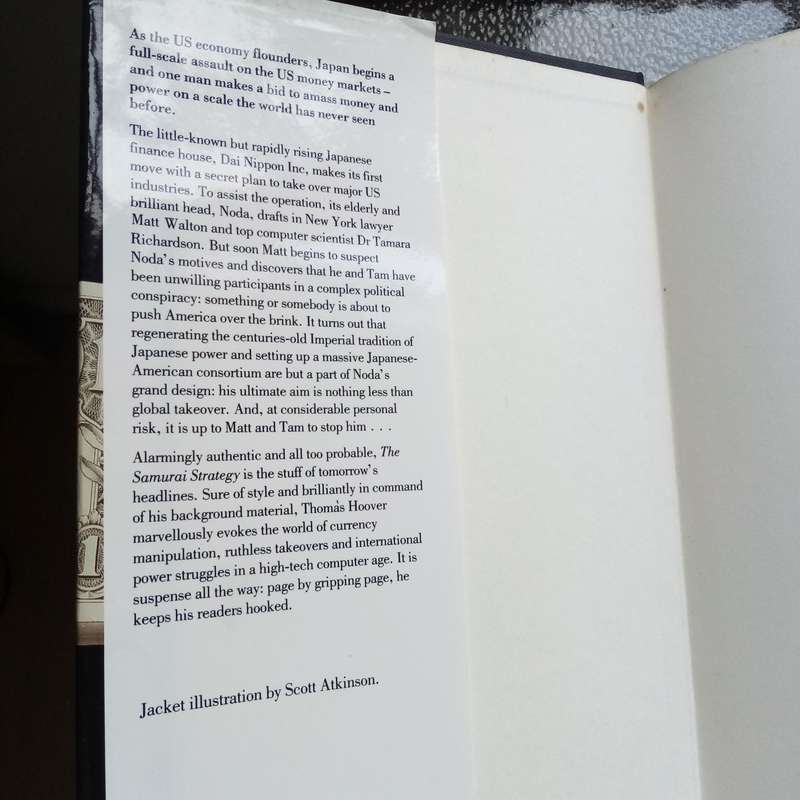 As the US economy flounders, Japan begins a
full-scale assault on the US money markets –
and one man makes a bid to amass money and
power on a scale the world has never seen
before.
The little-known but rapidly rising Japanese
finance house, Dai Nippon Inc, makes its first
move with a secret plan to take over major US
industries. To assist the operation, its elderly and
brilliant head, Noda, drafts in New York lawyer
Matt Walton and top computer scientist Dr Tamara
Richardson. But soon Matt begins to suspect
Noda's motives and discovers that he and Tam have
been unwilling participants in a complex political
conspiracy: something or somebody is about to
push America over the brink. It turns out that
regenerating the centuries-old Imperial tradition of
Japanese power and setting up a massive Japanese-
American consortium are but a part of Noda's
grand design: his ultimate aim is nothing less than
global takeover. And, at considerable personal
risk, it is up to Matt and Tam to stop him . . .
Alarmingly authentic and all too probable, The
Samurai Strategy is the stuff of tomorrow's
headlines. Sure of style and brilliantly in command
of his background material, Thomas Hoover
marvellously evokes the world of currency
manipulation, ruthless takeovers and international
power struggles in a high-tech computer age. It is
suspense all the way: page by gripping page, he
keeps his readers hooked.
Jacket illustration by Scott Atkinson.
1